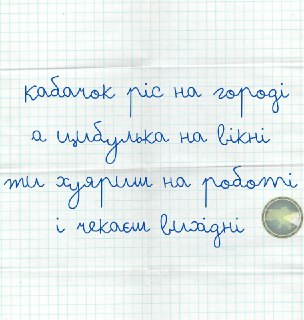 кабачок ріс на городі
а цибулька на вікні
ти хуяриш на роботі
і чекаєш вихідні